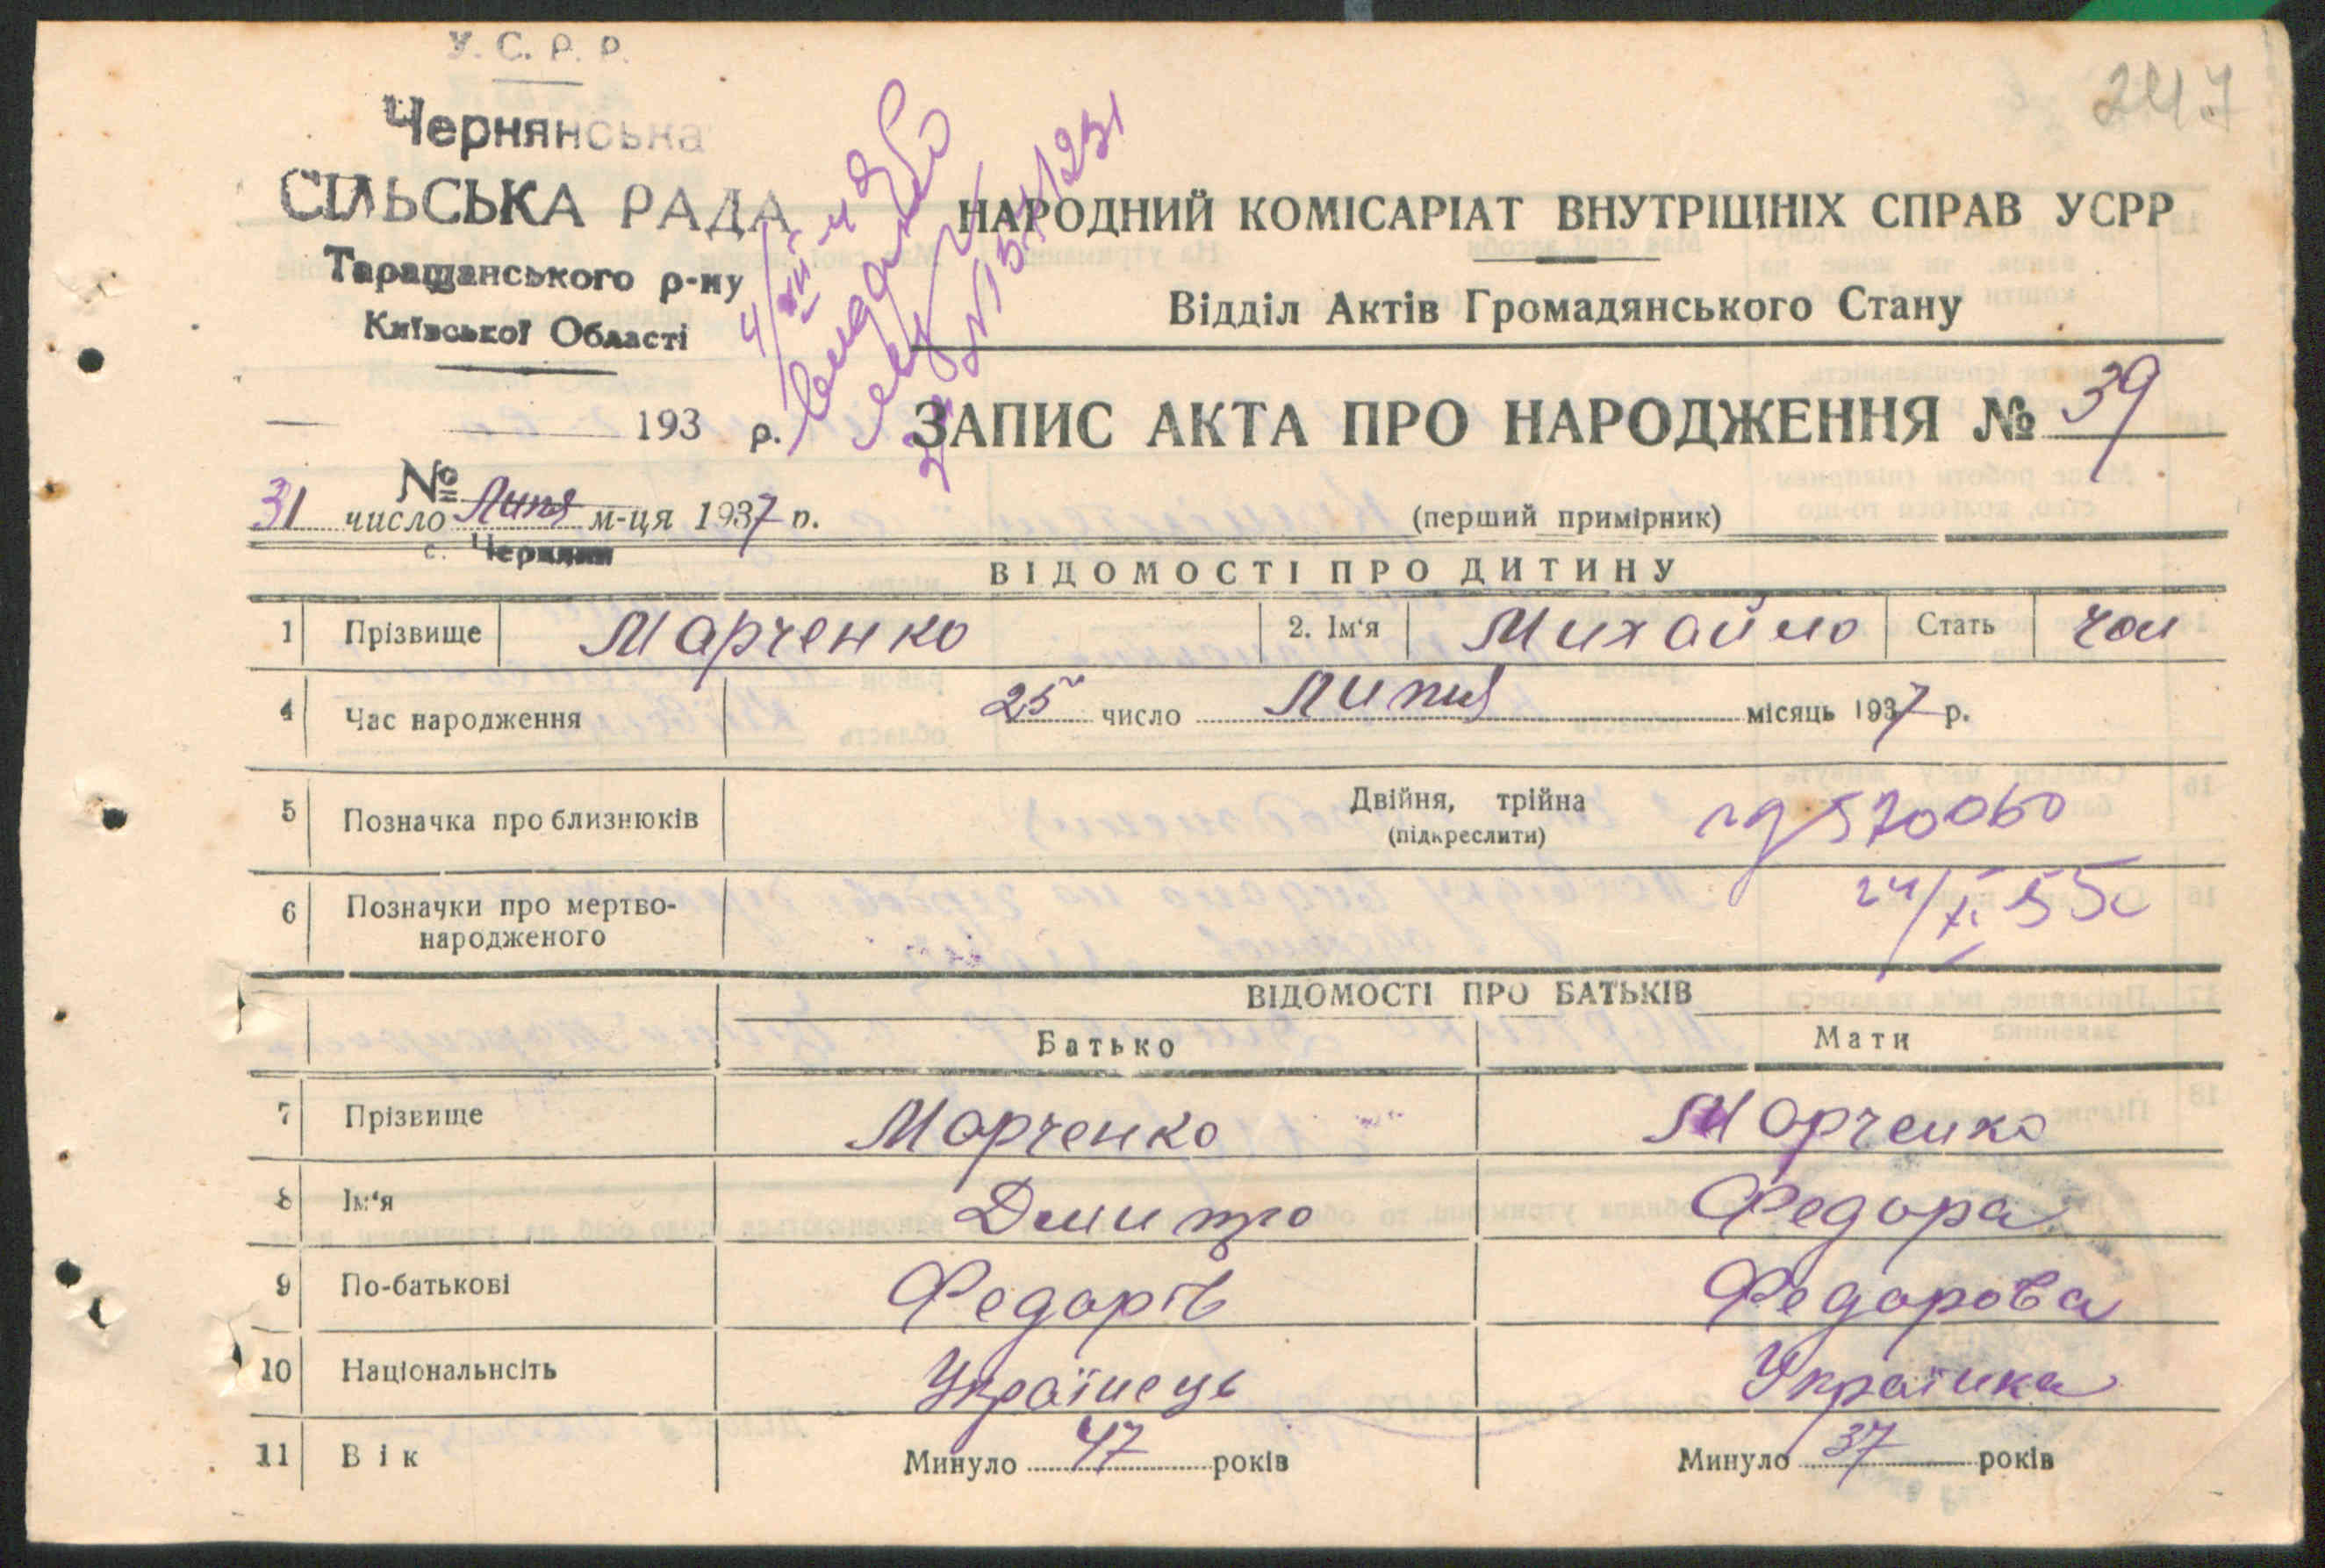 У. С. Р. Р.
247
Чернянська
СІЛЬСЬКА РАДА
Таращанського р-ну
Київської Області
193 р.
№
31 число Липня м-ця 1937 р.
с. Черняни
НАРОДНИЙ КОМІСАРІАТ ВНУТРІШНІХ СПРАВ УСРР
Відділ Актів Громадянського Стану
ЗАПИС АКТА ПРО НАРОДЖЕННЯ № 39
(перший примірник)
ВІДОМОСТІ ПРО ДИТИНУ
1 Прізвище Марченко 2. Ім'я Михайло Стать чол
4 Час народження 25 число Липня місяць 1937 р.
5 Позначка про близнюків Двійня, трійна
(підкреслити)
570060
6 Позначки про мертво-
народженого
24/XI 55
ВІДОМОСТІ ПРО БАТЬКІВ
Батько Мати
7 Прізвище Марченко Марченко
8 Ім'я Дмитро Федора
9 По-батькові Федорів Федорова
10 Національнсіть Українець Українка
11 Вік Минуло 47 років Минуло 37 років